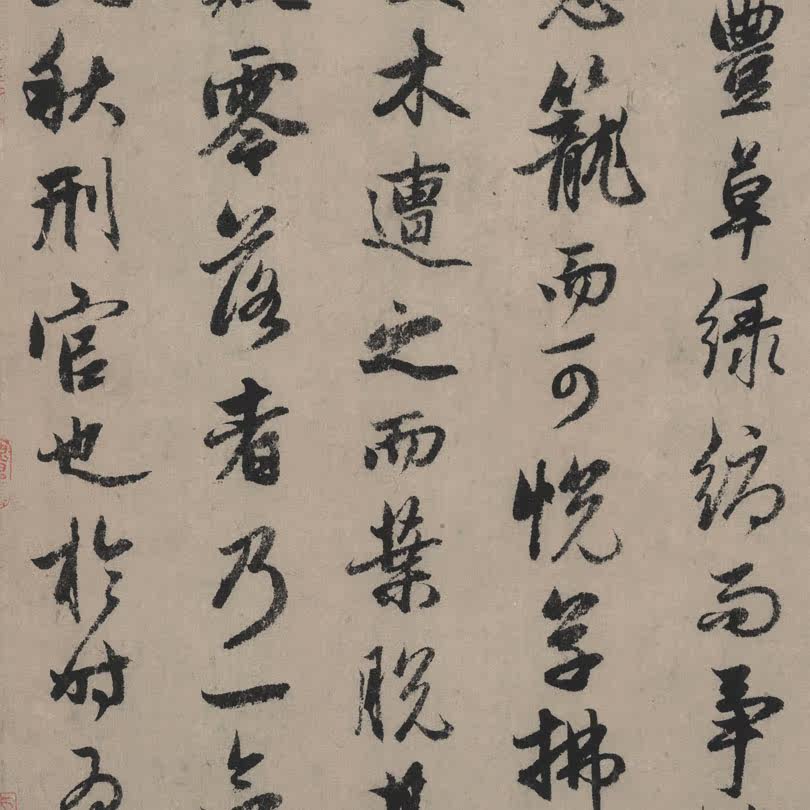 豐草綠縟而爭
籠而可悅草拂
木遭之而葉脫其
零落者乃一
秋刑官也於時為